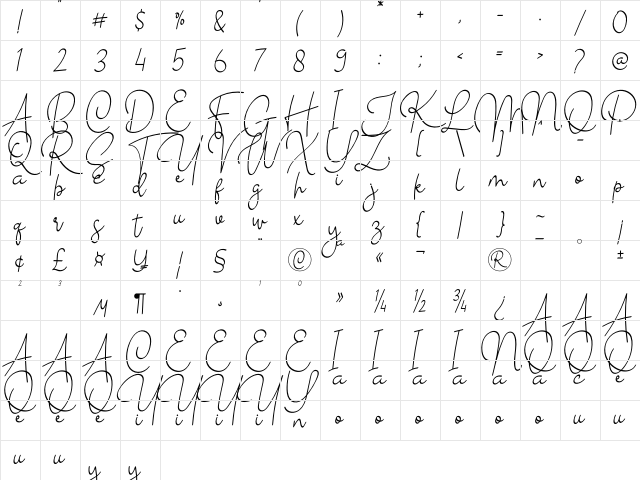 ! # $ % & ( ) * + , - . / 0
1 2 3 4 5 6 7 8 9 : ; < = > ? @
A B C D E F G H I J K L M N O P
Q R S T U V W X Y Z [ \ ] -
a b c d e f g h i j k l m n o p
q r s t u v w x y z { | } ~ ¡
¢ £ ¤ ¥ ¦ § ¨ © ª « ¬ ® ¯ ° ±
2 3 µ ¶ · ¸ 1 0 » ¼ ½ ¾ ¿ A A A
A A A C E E E E I I I I N O O
O O O U U U U Y a a a a a a c e
e e e i i i i n o o o o o u u
u u y y